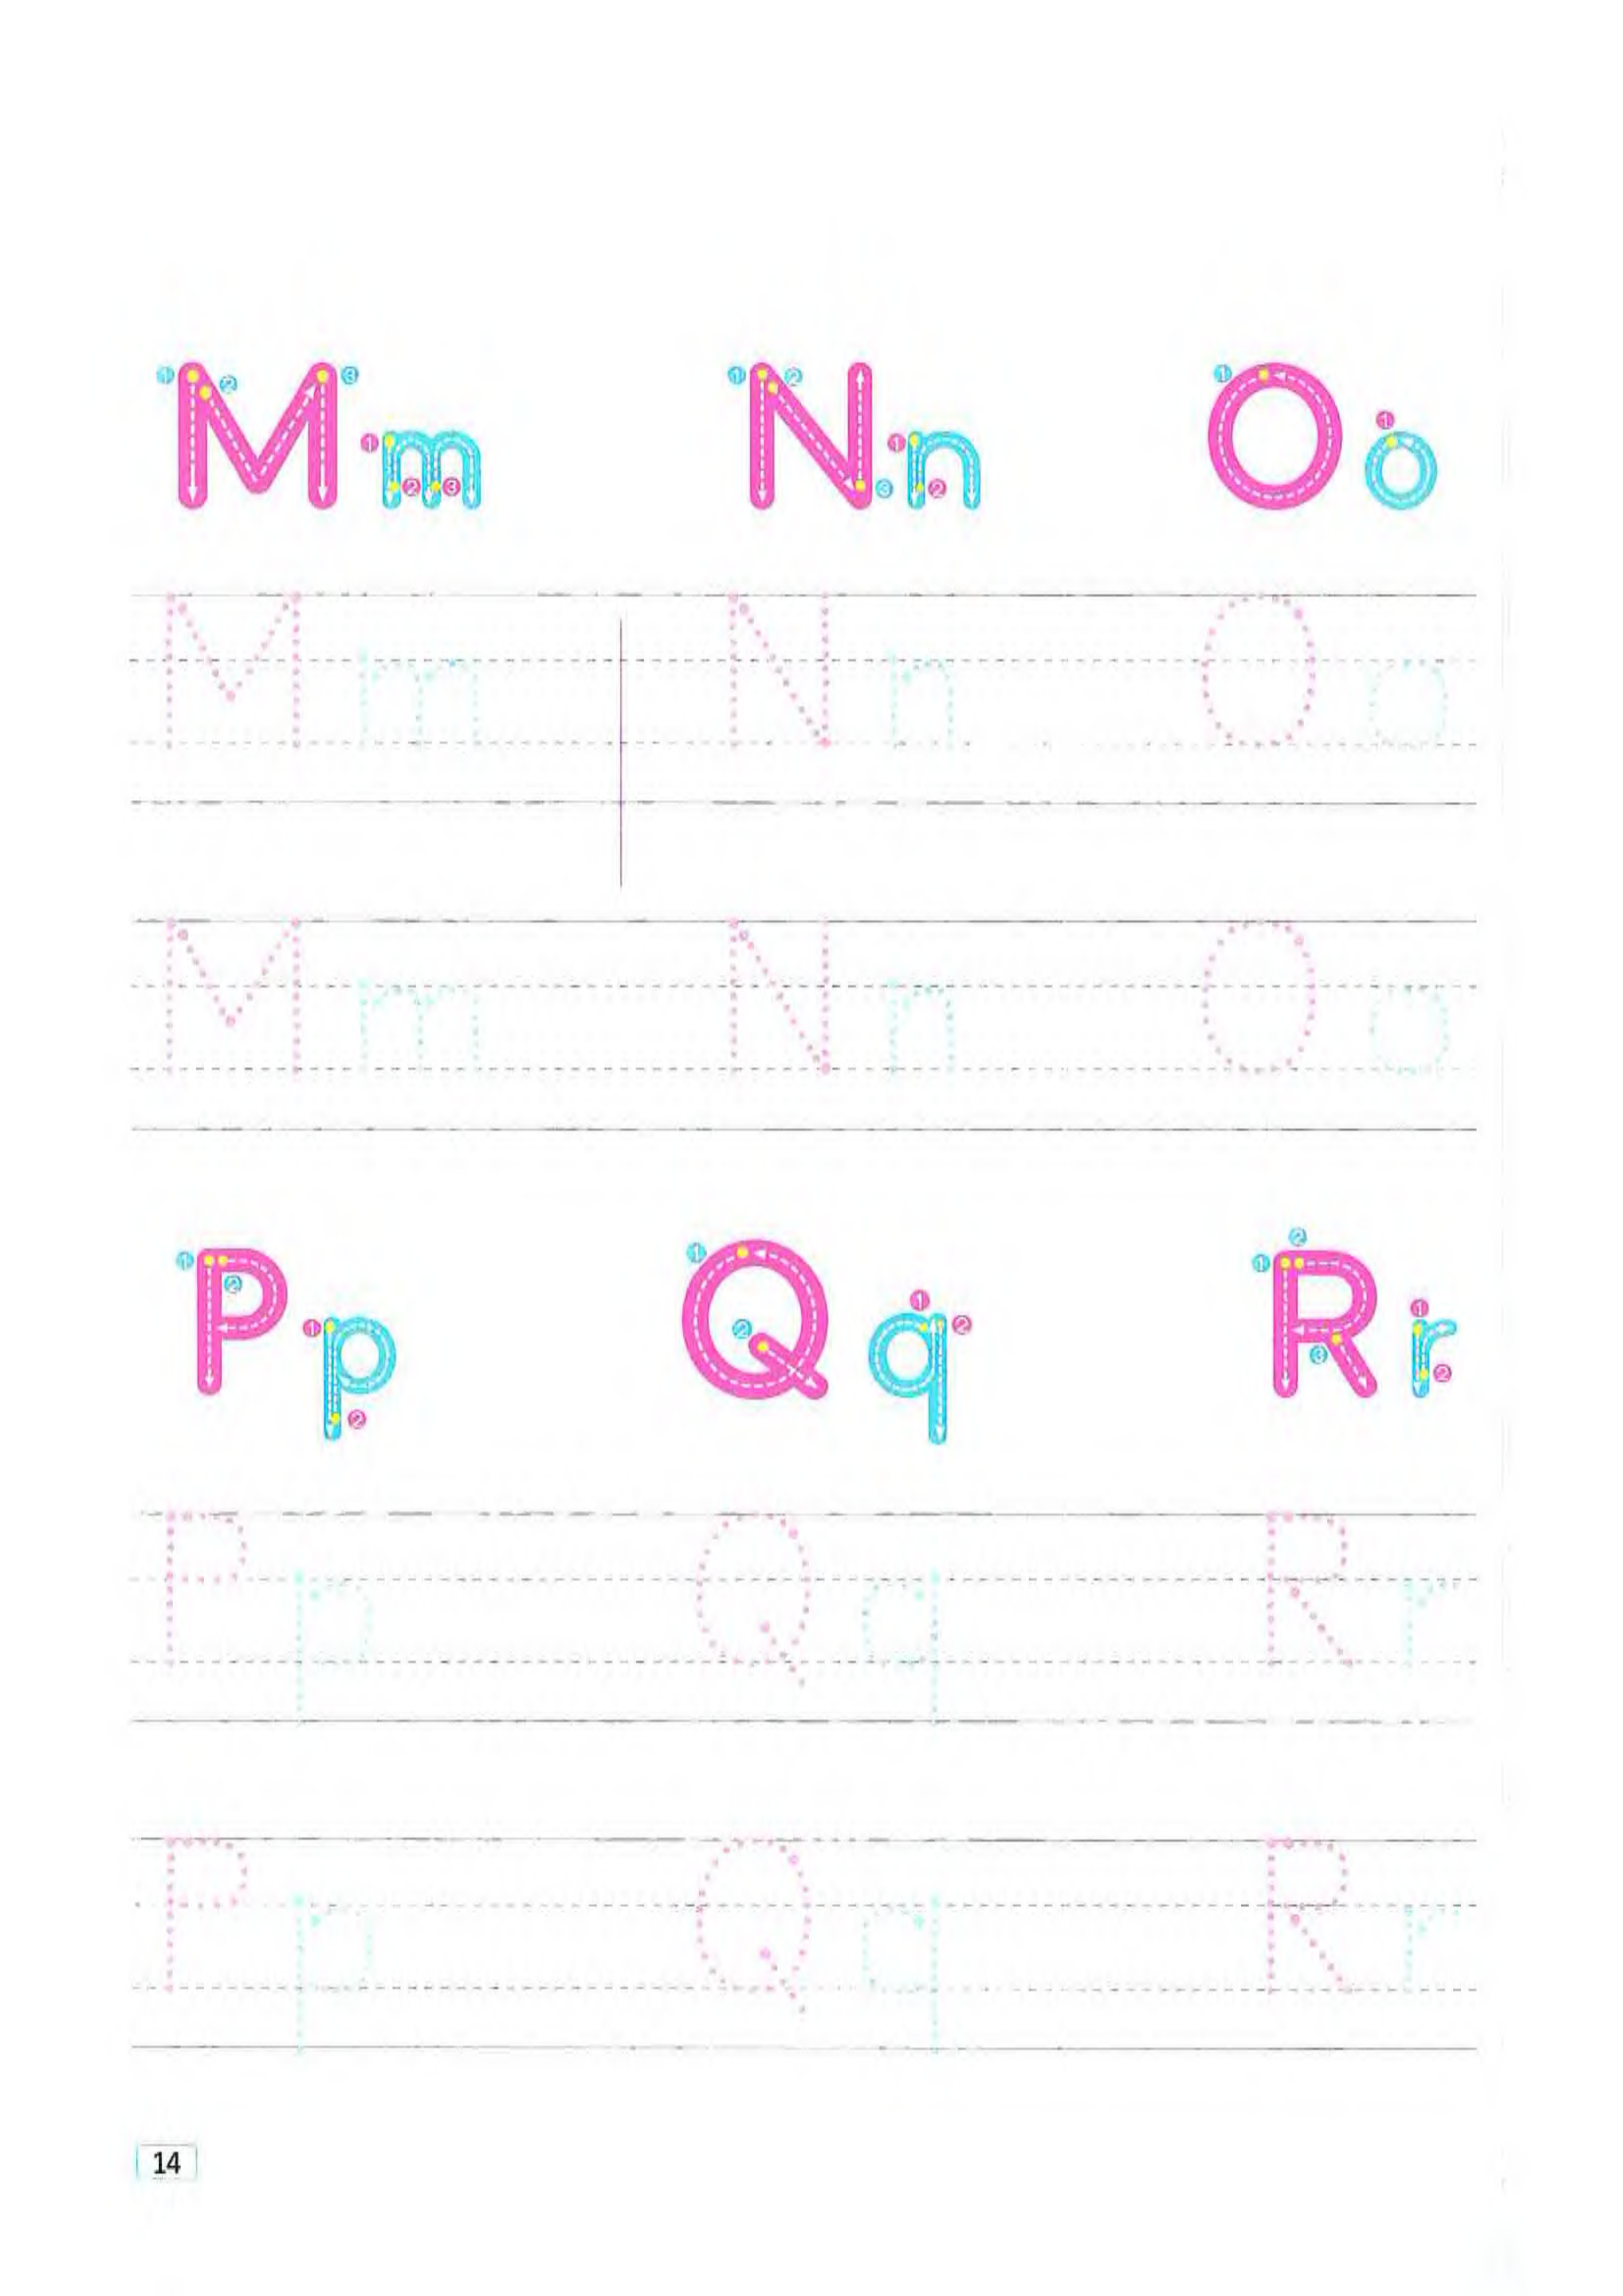 Mm Nn Oo
Mm Nn Oo
Mm Nn Oo
Pp Qq Rr
Pp Qq Rr
Pp Qq Rr
14